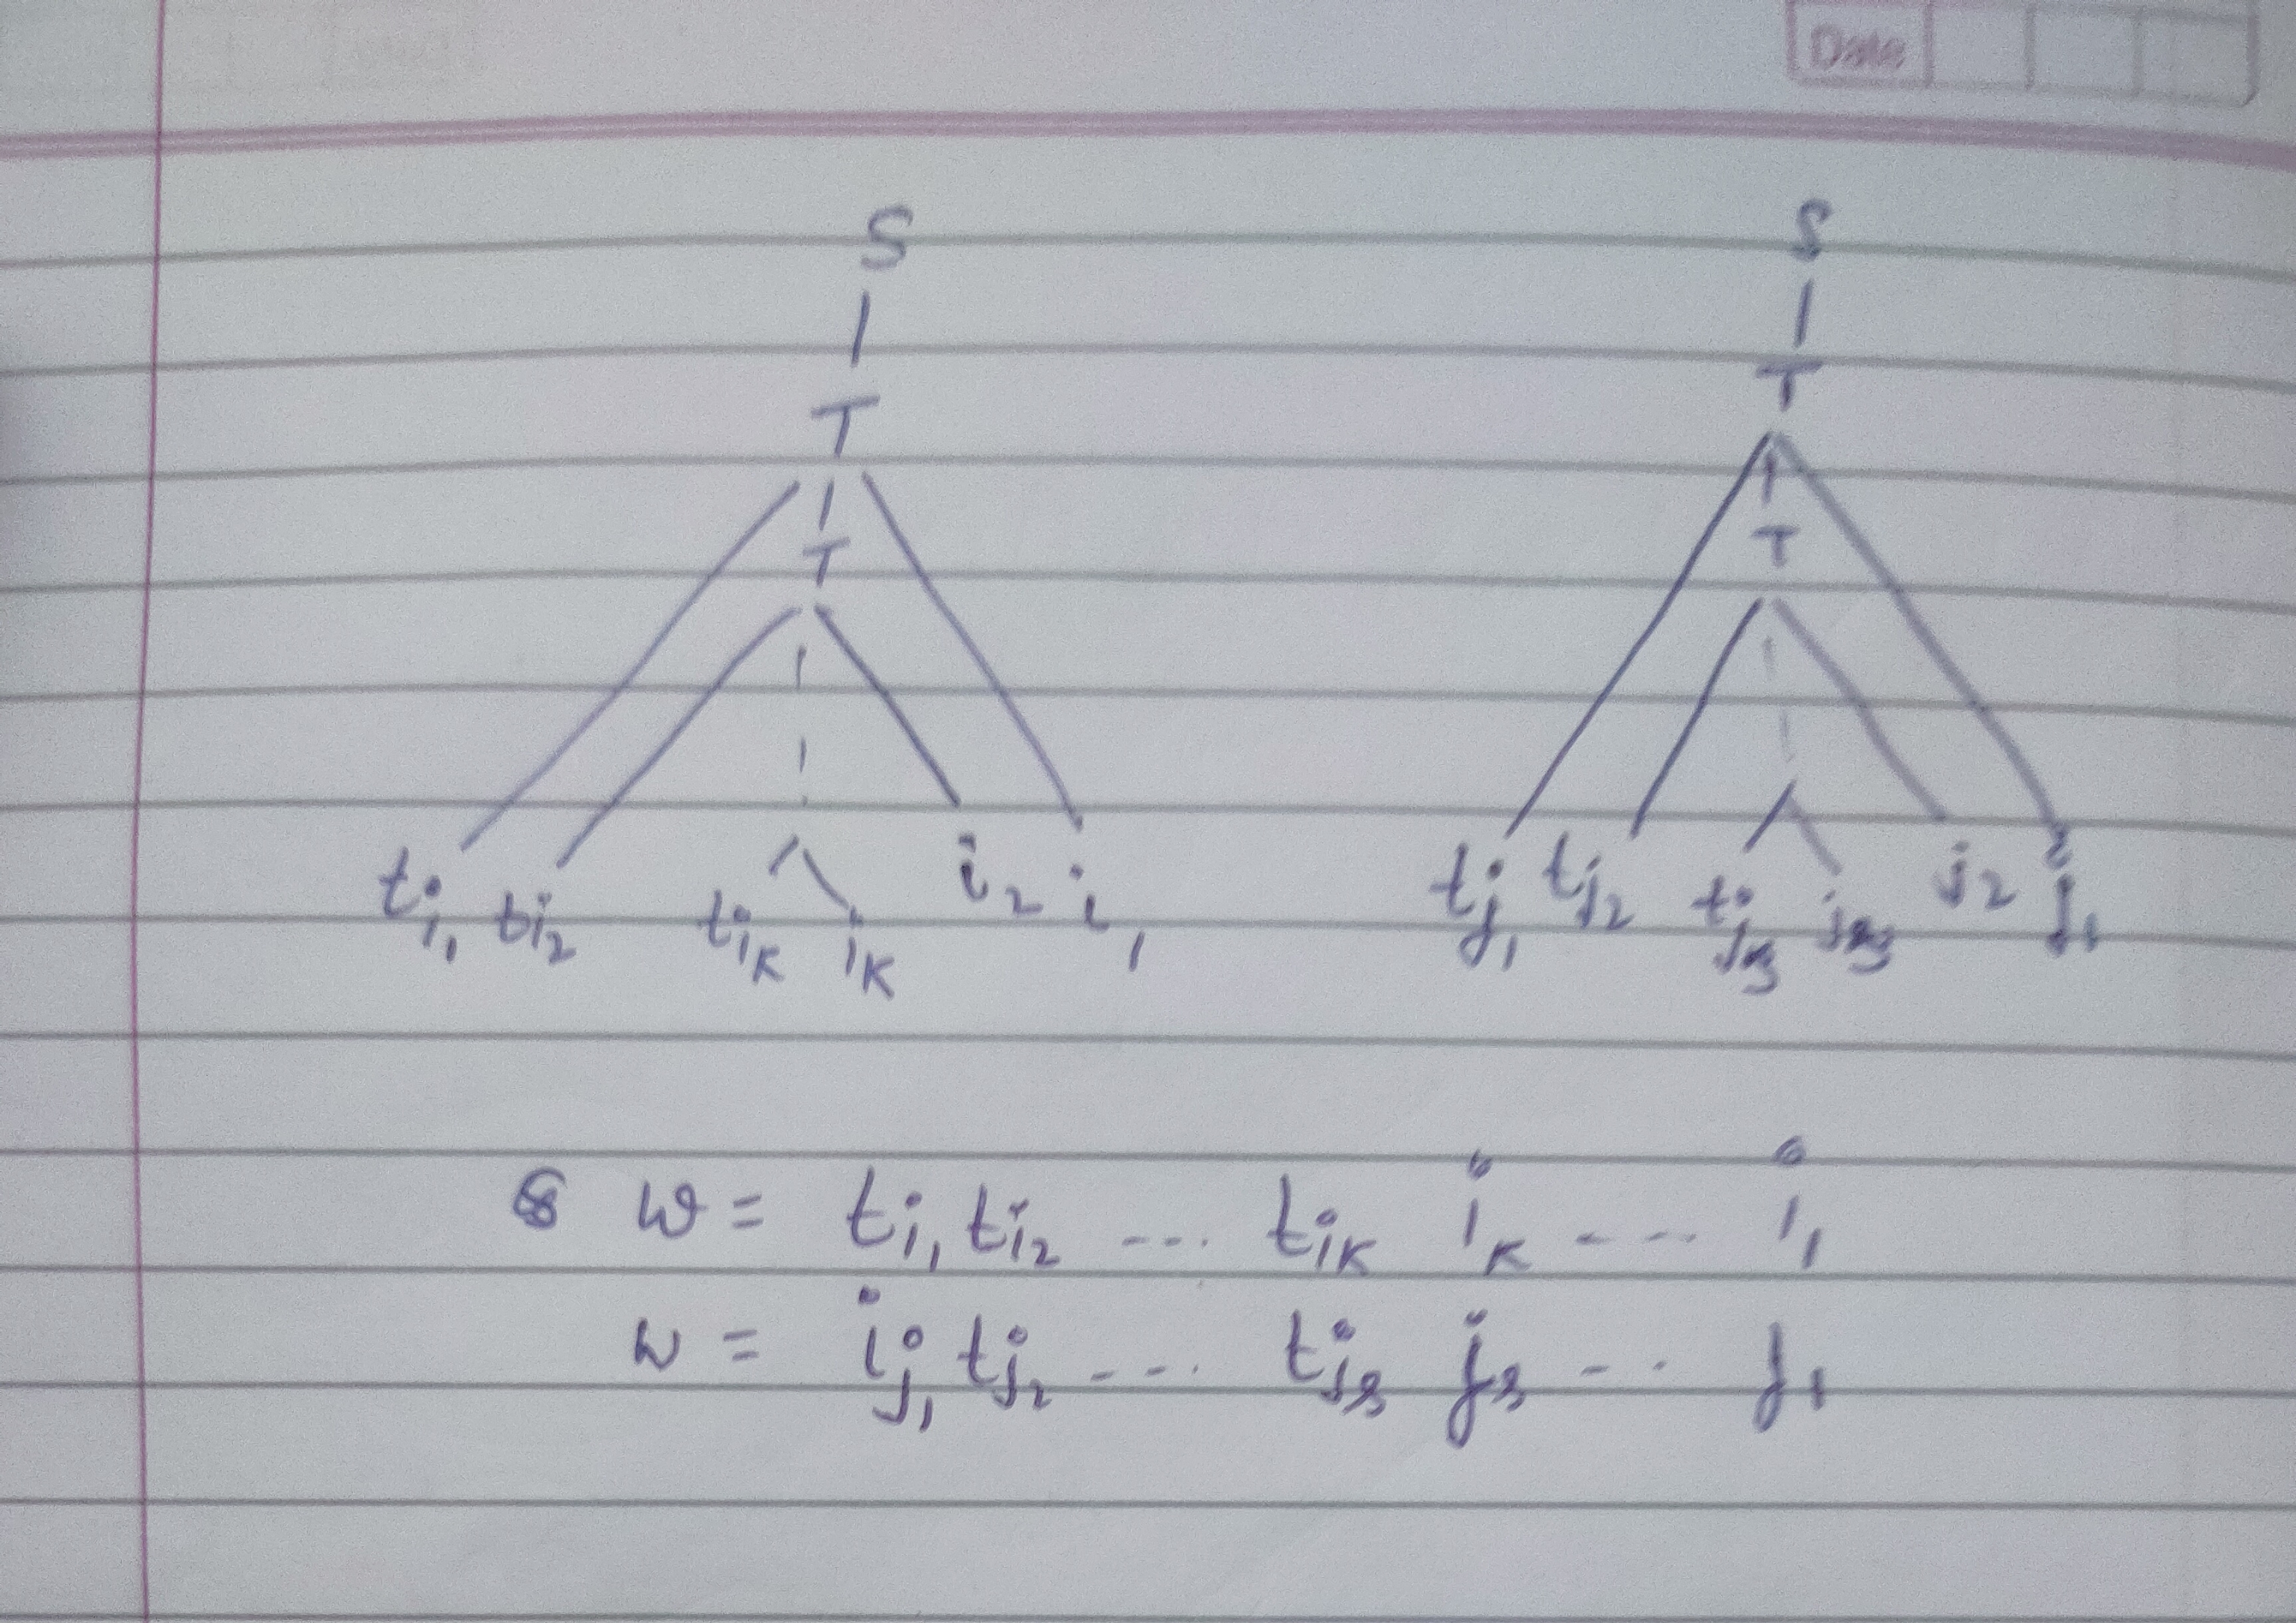 Date
S S
T T
T T
t_{i_1} t_{i_2} t_{i_k} i_k i_2 i_1 t_{j_1} t_{j_2} t_{j_3} j_3 j_2 j_1
w = t_{i_1} t_{i_2} --- t_{i_k} i_k --- i_1
w = i_{j_1} t_{j_2} --- t_{j_s} j_s --- j_1